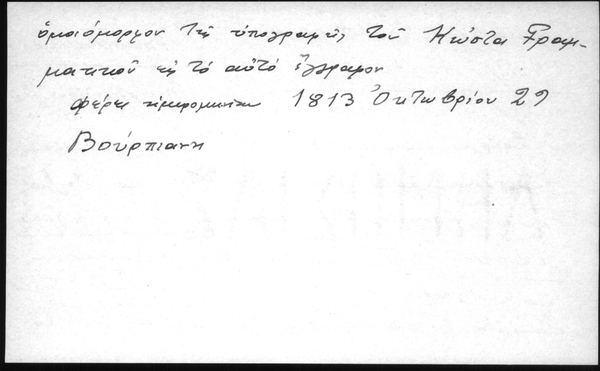 ὁμοιόμορφον τῆς ὑπογραφῆς τοῦ Κώστα Γραμ-
ματικοῦ εἰς τό αὐτό ἔγγραφον
φέρει ἡμερομηνίαν 1813 Ὀκτωβρίου 29
Βούρπιανη